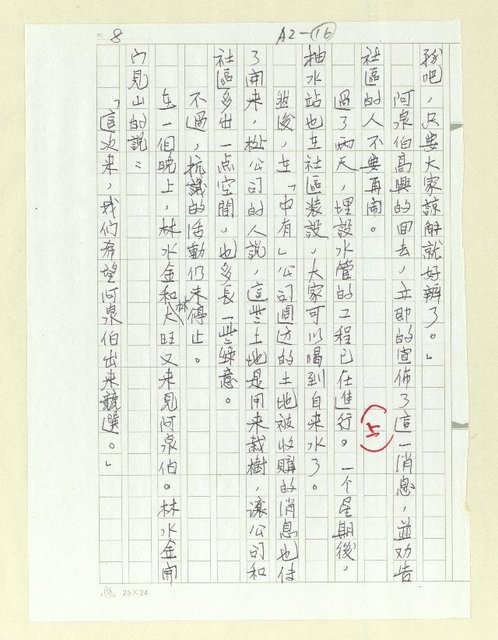 A2-16
8
我吧，只要大家諒解就好辦了。」
阿泉伯高興的回去，立即的宣佈了這一消息，並劝告
社區的人不要再鬧。
過了兩天，埋設水管的工程已在進行。一个星期後，
抽水站也在社區裝設，大家可以喝到自來水了。
然後，在「中有」公司周边的土地被收購的消息也传
了開來，據公司的人說，這些土地是用來栽樹，讓公司和
社區多出一点空間，也多長一些綠意。
不過，抗議的活動仍未停止。
在一個晚上，林水金和林大旺又來見阿泉伯。林水金開
門見山的說：
「這次來，我們希望阿泉伯出來競選。」
5
25×24